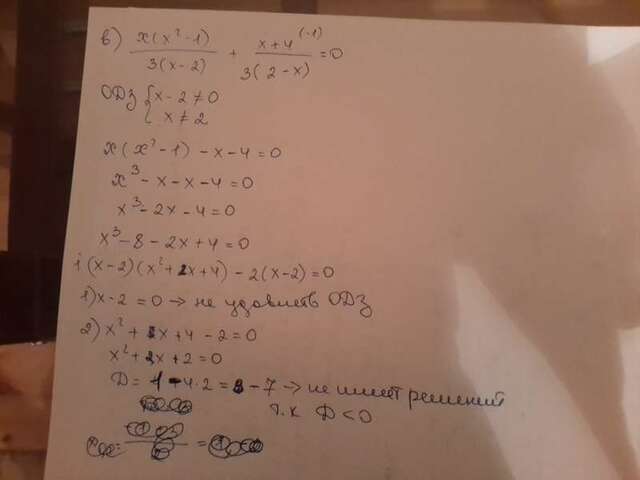 в) x(x²-1)/3(x-2) + x+4(-1)/3(2-x) =0
ОДЗ { x-2≠0
x≠2
x(x²-1)-x-4=0
x³-x-x-4=0
x³-2x-4=0
x³-8-2x+4=0
(x-2)(x²+2x+4)-2(x-2)=0
1) x-2=0→не удовлетв ОДЗ
2) x²+2x+4-2=0
x²+2x+2=0
D= 1-4·2= -7→не имеет решений
т.к D<0
=